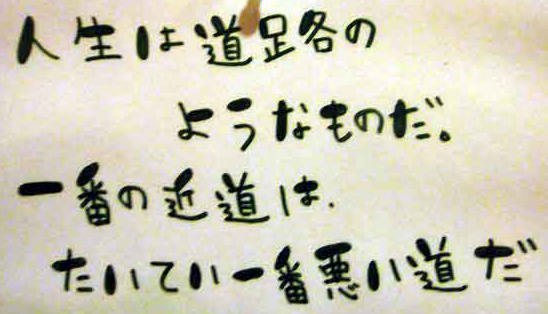 人生は道路の
ようなものだ。
一番の近道は、
たいてい一番悪い道だ